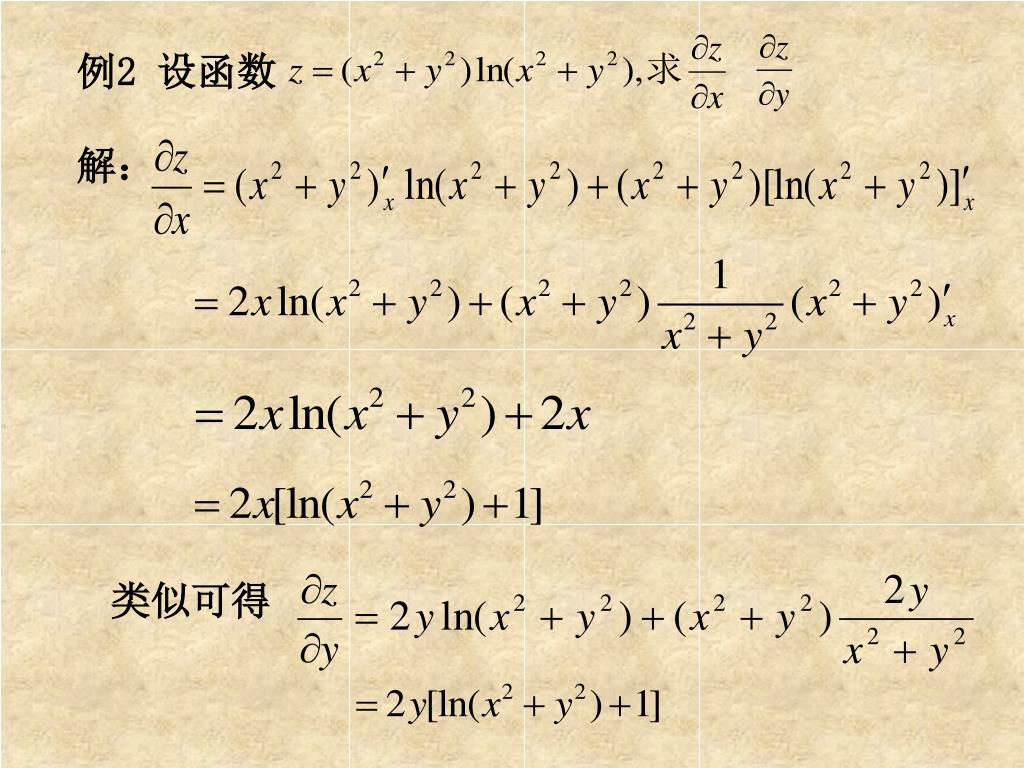 例2 设函数 z = (x² + y²)ln(x² + y²),求 ∂z/∂x ∂z/∂y
解: ∂z/∂x = (x² + y²)′ₓ ln(x² + y²) + (x² + y²)[ln(x² + y²)]′ₓ
= 2x ln(x² + y²) + (x² + y²) 1/(x² + y²) (x² + y²)′ₓ
= 2x ln(x² + y²) + 2x
= 2x[ln(x² + y²) + 1]
类似可得 ∂z/∂y = 2y ln(x² + y²) + (x² + y²) 2y/(x² + y²)
= 2y[ln(x² + y²) + 1]